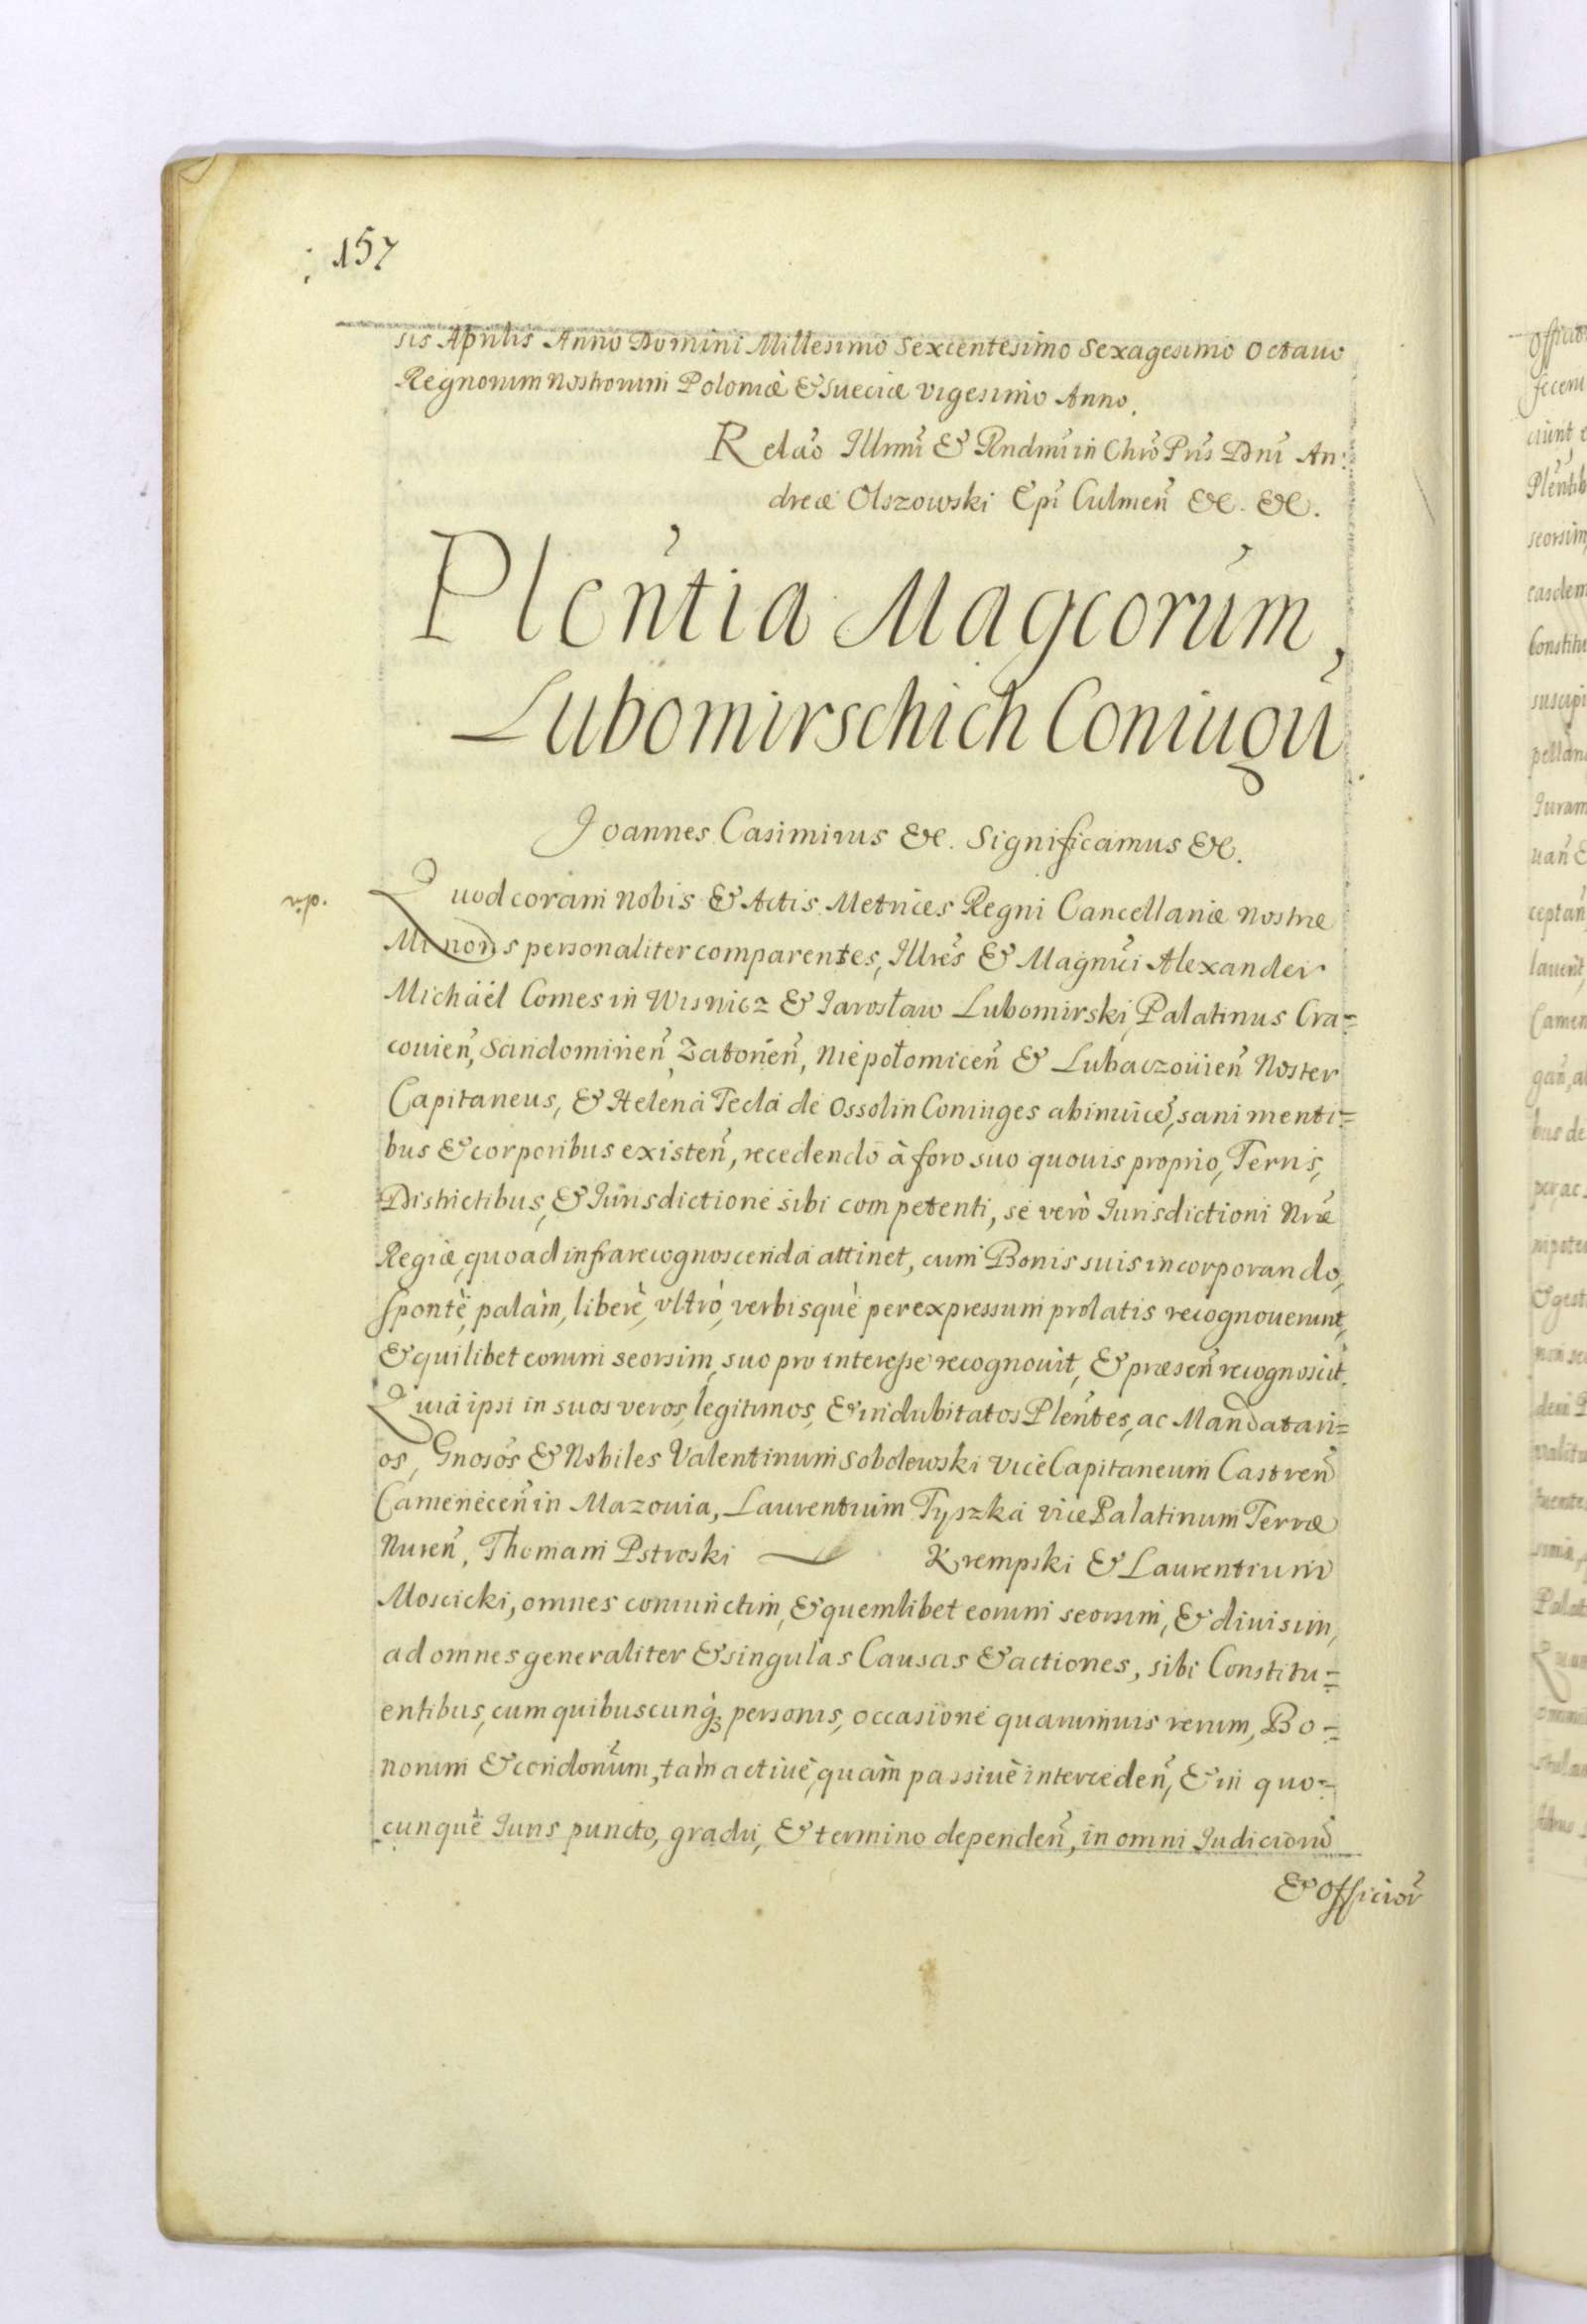 157
sis Aprilis Anno Domini Millesimo Sexcentesimo Sexagesimo Octauo
Regnorum Nostrorum Poloniæ & Sueciæ Vigesimo Anno.
Relão Illrmi & Rndmi in Chrō Pris Dnī An:
dreæ Olszowski Epī Culmeñ &c. &c.
Pleñtia Magcorum,
Lubomirschich Coniugū.
Joannes Casimirus &c. Significamus &c.
Quod coram Nobis & Actis Metrices Regni Cancellariæ Nostræ
Minoris personaliter comparentes, Illres & Magnci Alexander
Michäel Comes in Wisnicz & Jarosław Lubomirski, Palatinus Cra=
couieñ, Sandomirieñ, Zatorieñ, Niepołomiceñ & Lubaczouieñ Noster
Capitaneus, & Helena Tecla de Ossolin Coniuges abinuicē, sani menti=
bus & corporibus existeñ, recedendo à foro suo quouis proprio, Terris,
Districtibus, & Jurisdictione sibi competenti, se verò Jurisdictioni Nræ
Regiæ, quoad infra recognoscenda attinet, cum Bonis suis incorporando,
sponte, palàm, liberè, vltrò, verbisque per expressum prolatis recognouerunt,
& quilibet eorum seorsim, suo pro interesse recognouit, & præseñ recognoscit.
Quia ipsi in suos veros, legitimos, & indubitatos Pleñtes, ac Mandatari=
os, Gnosos & Nobiles Valentinum Sobolewski Vice Capitaneum Castreñ
Cameneceñ in Mazouia, Laurentium Tyszka vice Palatinum Terræ
Nureñ, Thomam Pstroski Krempski & Laurentium
Moscicki, omnes coniunctim, & quemlibet eorum seorsim, & diuisim,
ad omnes generaliter & singulas Causas & actiones, sibi Constitu=
entibus, cum quibuscunq; personis, occasione quarumuis rerum, Bo=
norum & condonum, tàm actiuè, quàm passiuè intercedeñ, & in quo=
cunque Juris puncto, gradu, & termino dependeñ, in omni Judiciorū
& Officior̃